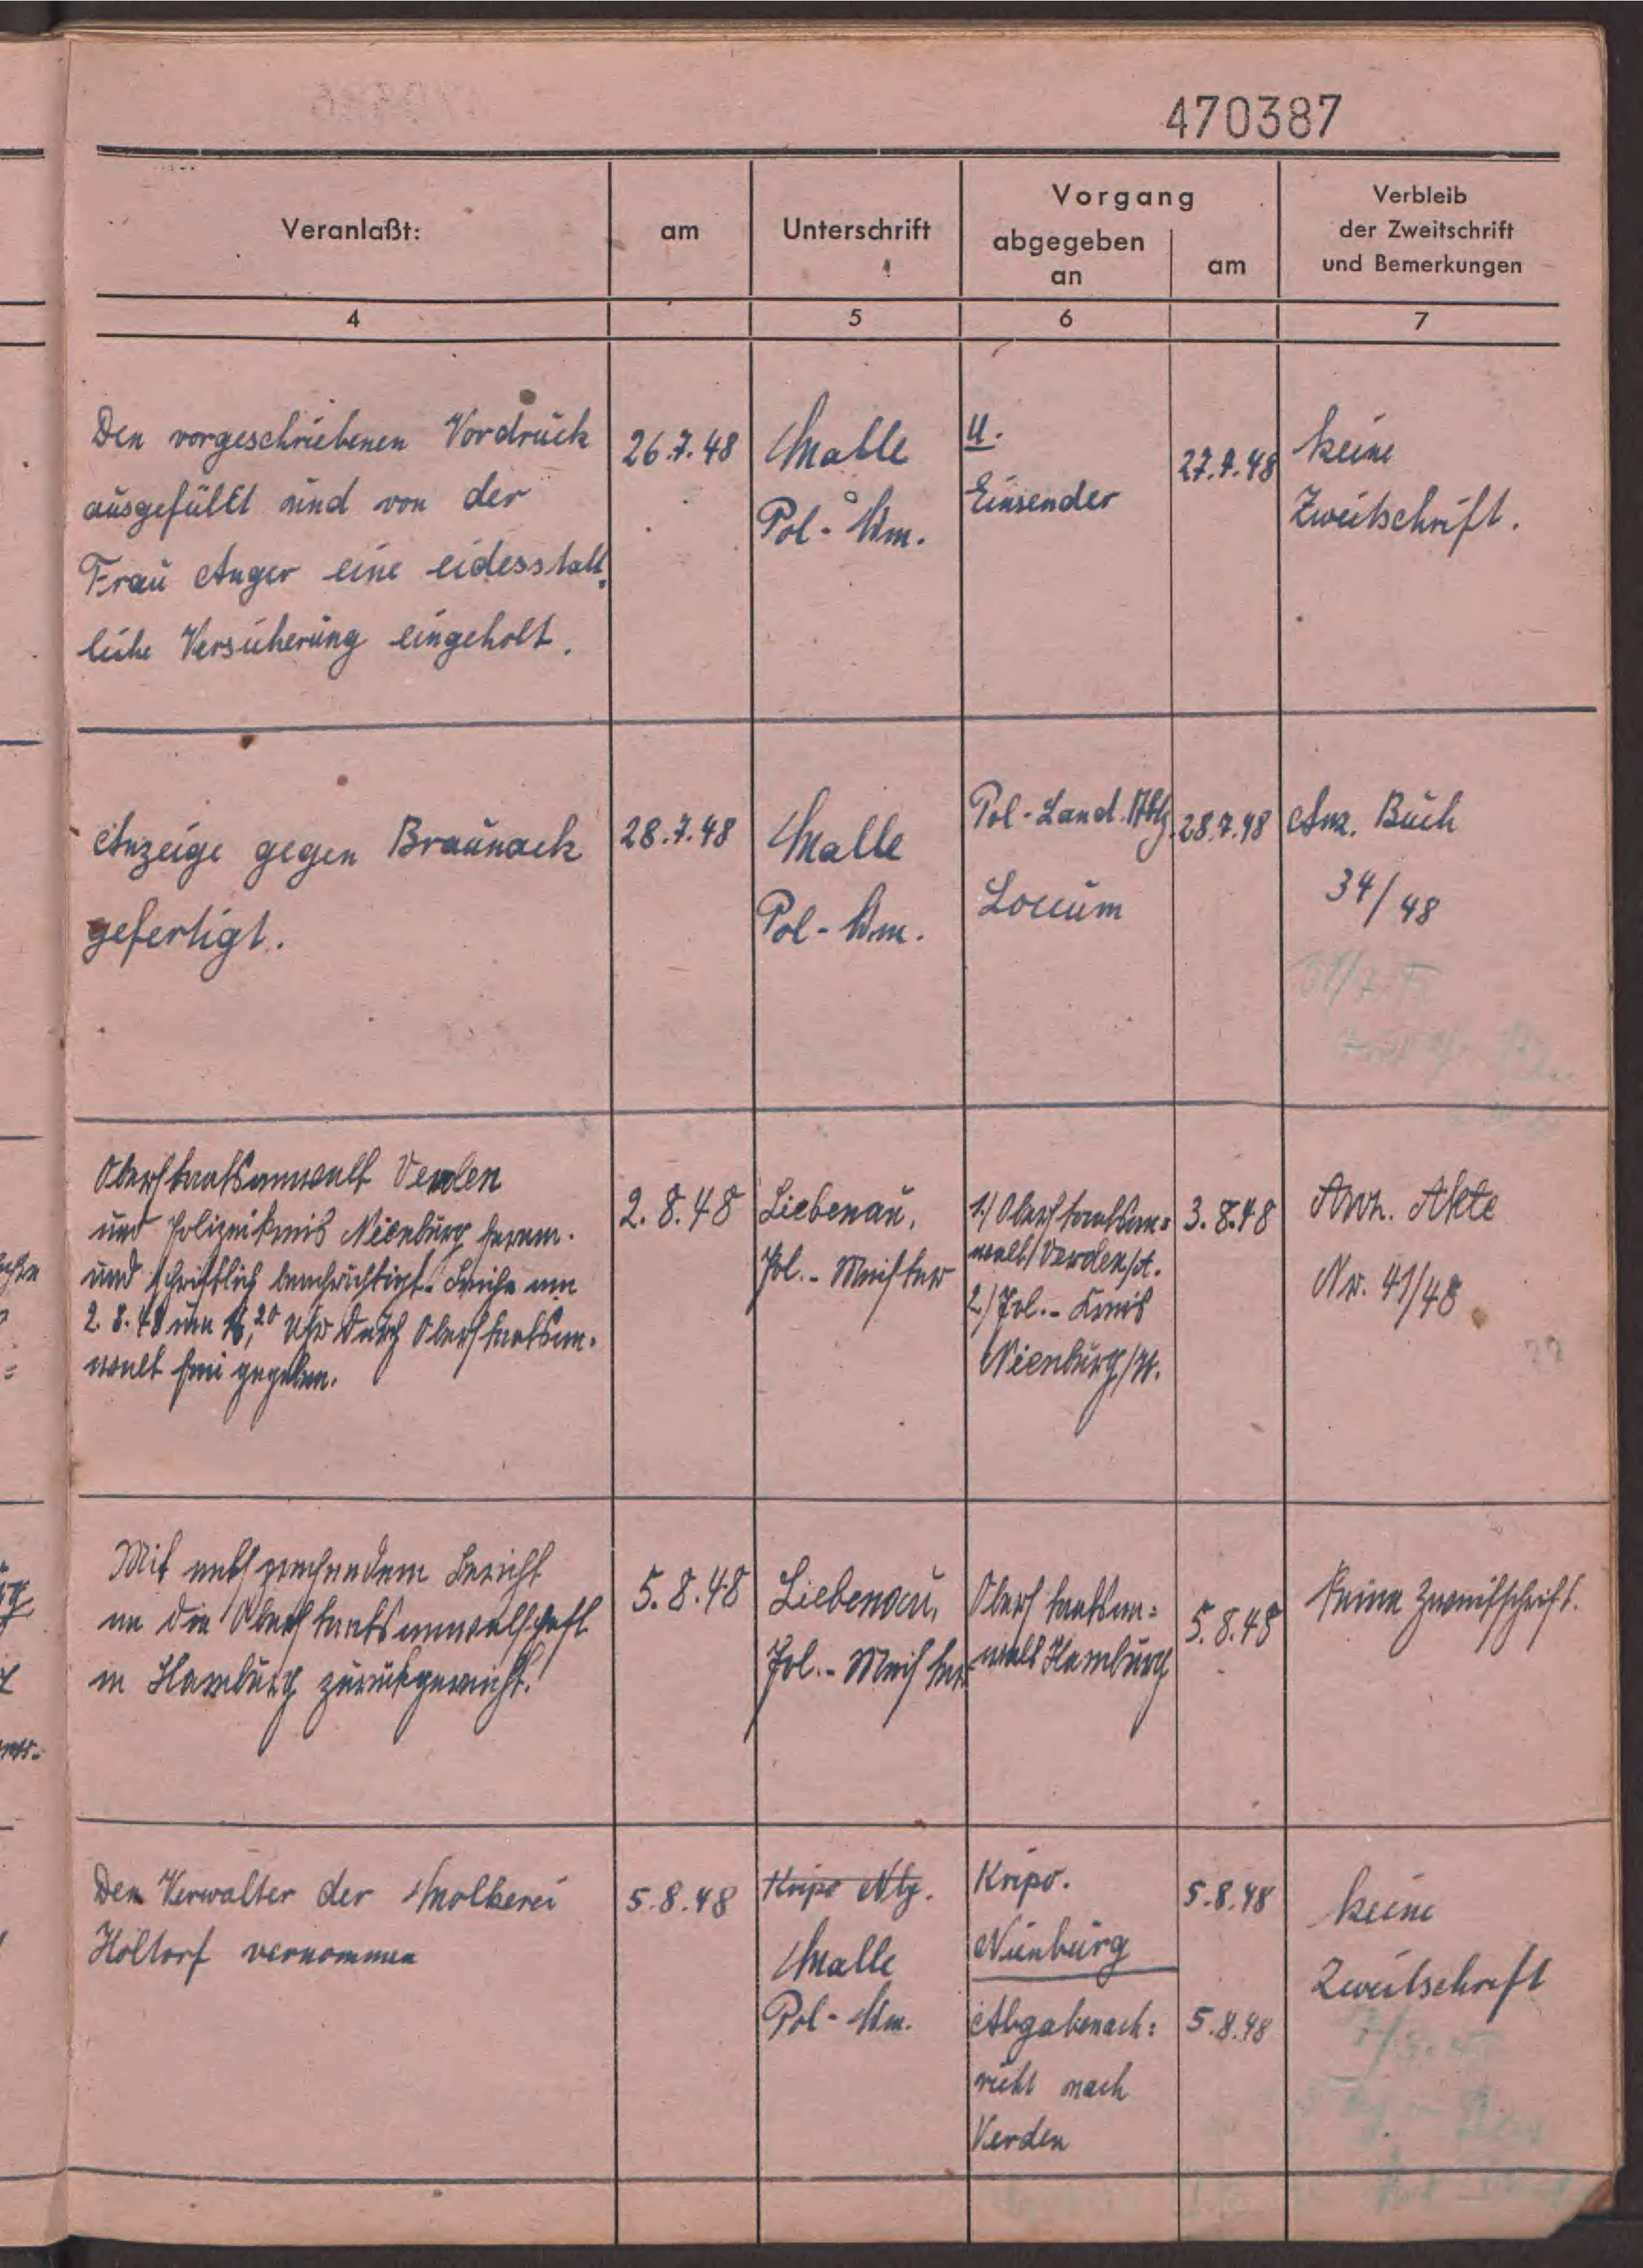 470387
Veranlaßt:
am
Unterschrift
Vorgang
abgegeben
an
am
Verbleib
der Zweitschrift
und Bemerkungen
4
5
6
7
Den vorgeschriebenen Vordruck
ausgefüllt und von der
Frau Anger eine eidesstatt=
liche Versicherung eingeholt.
26.7.48
Malle
Pol-Wm.
U.
Einsender
27.7.48
keine
Zweitschrift.
Anzeige gegen Braunack
gefertigt.
28.7.48
Malle
Pol-Wm.
Pol-Land.Abtg.
Loccum
28.7.48
Anz. Buch
34/48
Oberstaatsanwalt Verden
und Polizeikreis Nienburg fernm.
und schriftlich benachrichtigt. Leiche am
2.8.48 um 16,20 Uhr durch Oberstaatsan=
walt frei gegeben.
2.8.48
Liebenau,
Pol.-Meister
1./ Oberstaatsan=
walt/Verden/A.
2./ Pol.-Kreis
Nienburg/W.
3.8.48
Anz. Akte
Nr. 41/48
Mit entsprechendem Bericht
an die Oberstaatsanwalschaft
in Hamburg zurückgereicht.
5.8.48
Liebenau,
Pol.-Meister
Oberstaatsan=
walt Hamburg
5.8.48
Keine Zweitschrift.
Den Verwalter der Molkerei
Holtorf vernommen
5.8.48
Kripo Nbg.
Malle
Pol-Wm.
Kripo.
Nienburg
5.8.48
Abgabenach=
richt nach
Verden
5.8.48
keine
Zweitschrift